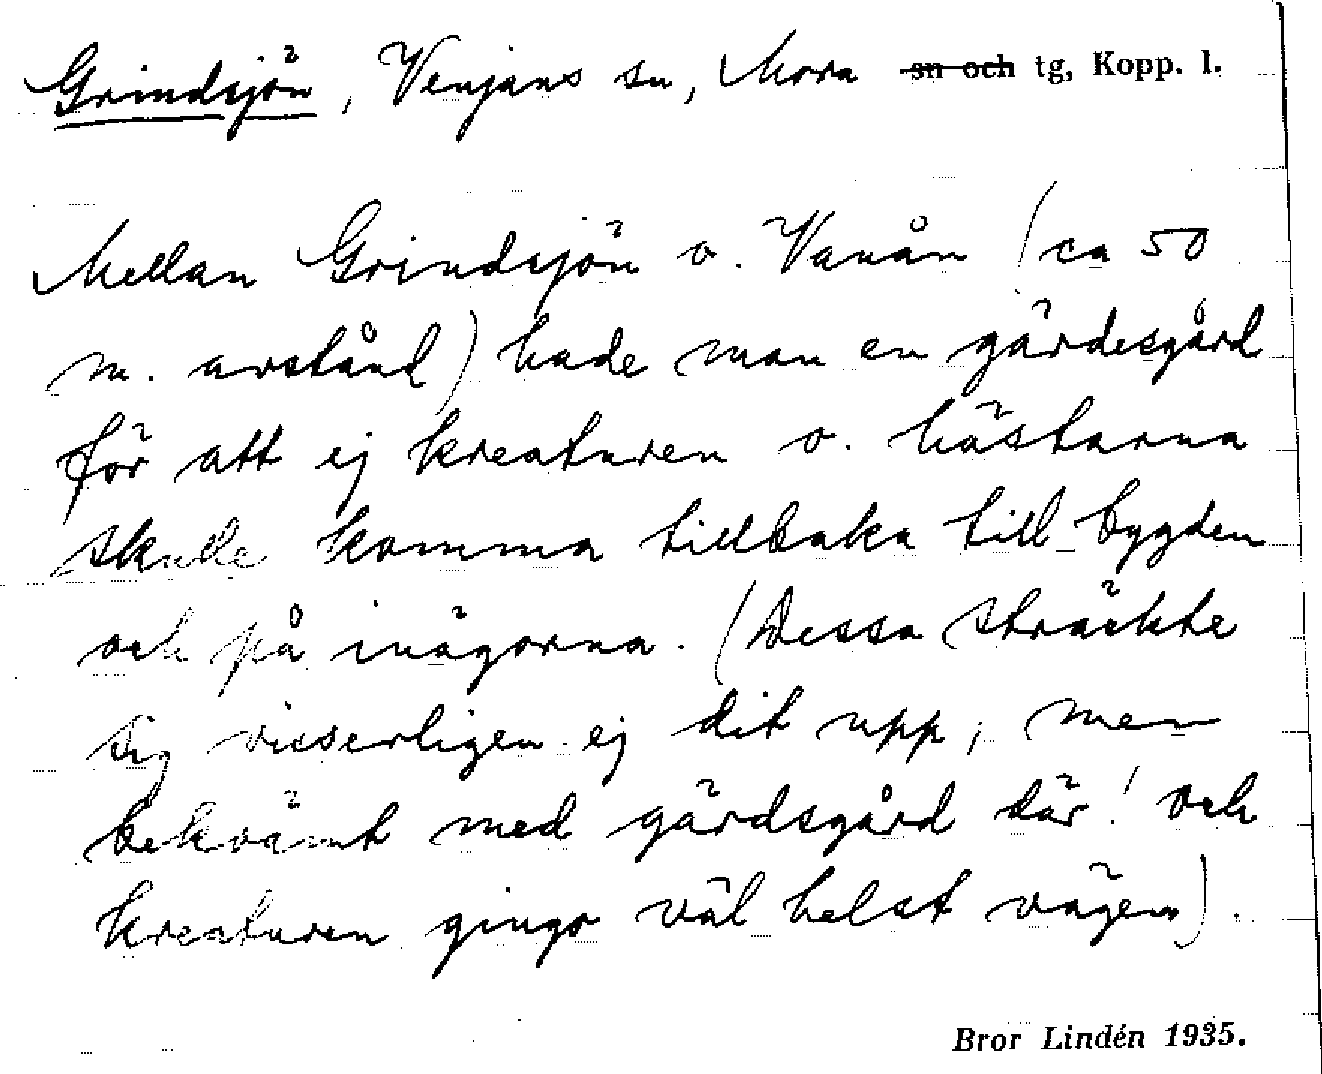 Grindsjön, Venjans sn, Mora sn och tg, Kopp. l.
Mellan Grindsjön o. Vanån (ca 50
m. avstånd) hade man en gärdesgård
för att ej kreaturen o. hästarna
skulle komma tillbaka till bygden
och på inägorna. (Dessa sträckte
sig visserligen ej dit upp, men
bekvämt med gärdsgård där! och
kreaturen gingo väl helst vägen).
Bror Lindén 1935.